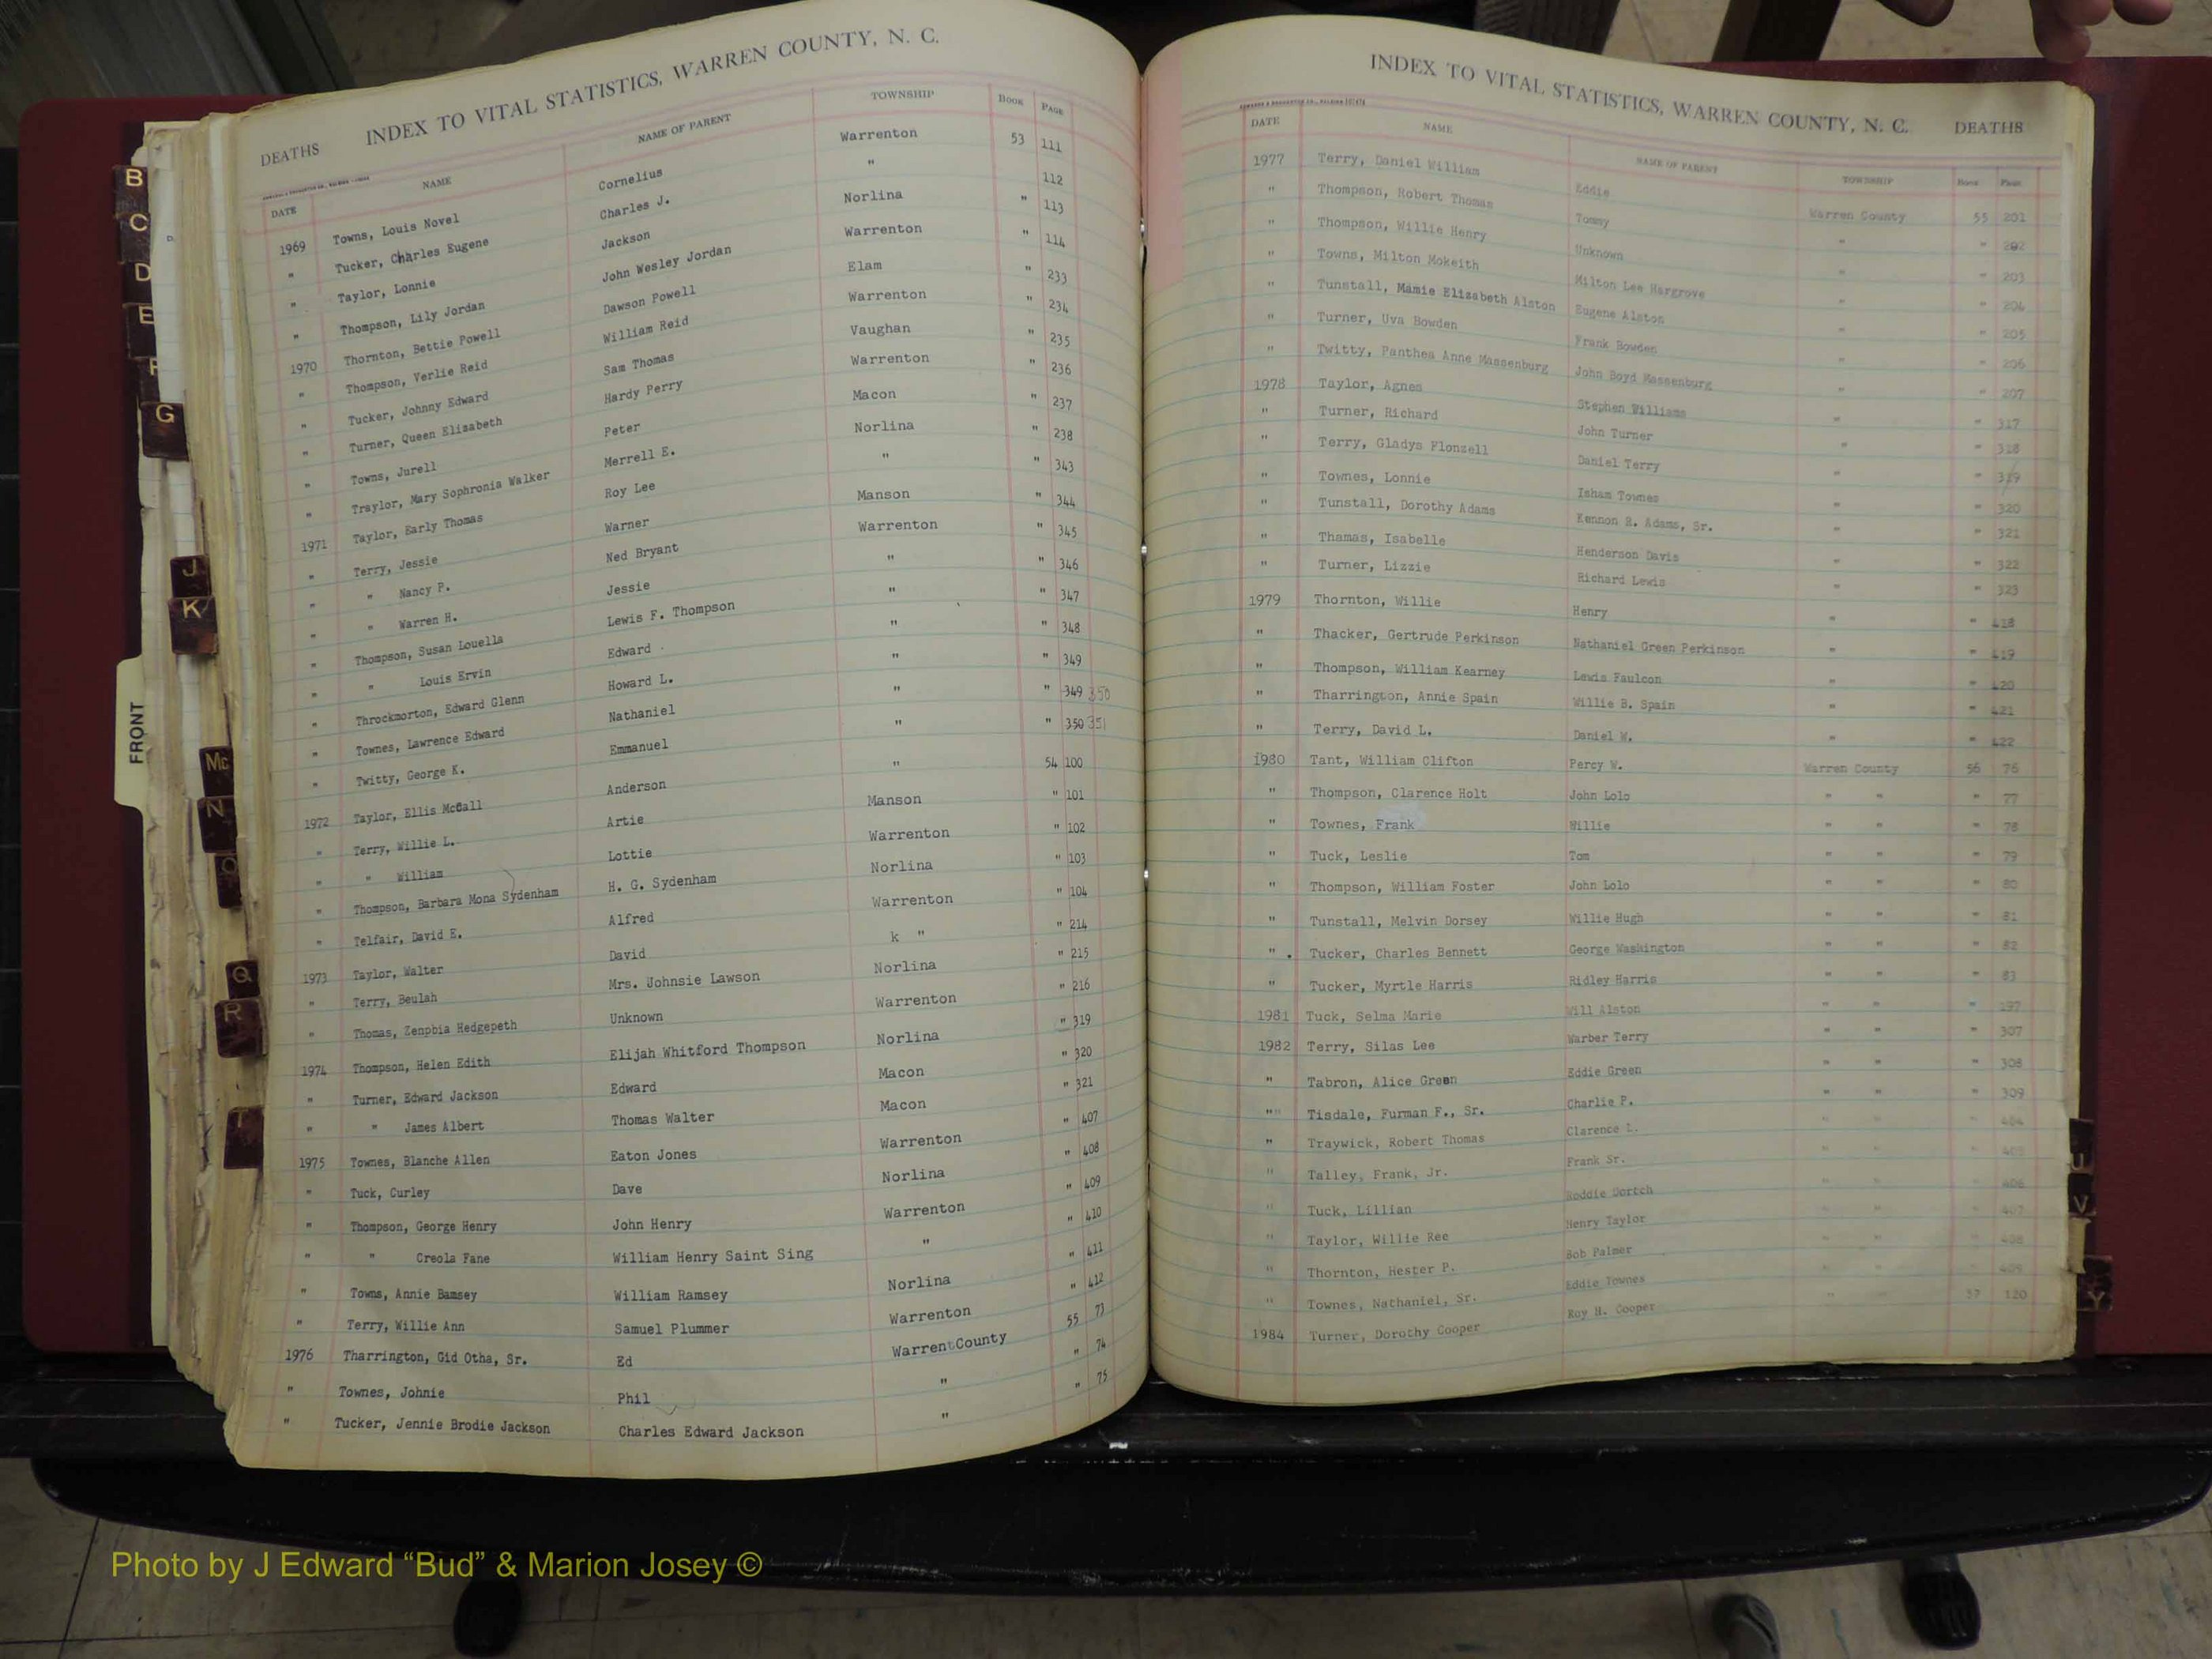 INDEX TO VITAL STATISTICS, WARREN COUNTY, N. C.
DEATHS
DATE NAME NAME OF PARENT TOWNSHIP BOOK PAGE
1969 Towns, Louis Novel Cornelius Warrenton 53 111
" Tucker, Charles Eugene Charles J. " 112
" Taylor, Lonnie Jackson Norlina " 113
" Thompson, Lily Jordan John Wesley Jordan Warrenton " 114
1970 Thornton, Bettie Powell Dawson Powell Elam " 233
" Thompson, Verlie Reid William Reid Warrenton " 234
" Tucker, Johnny Edward Sam Thomas Vaughan " 235
" Turner, Queen Elizabeth Hardy Perry Warrenton " 236
" Towns, Jurell Peter Macon " 237
" Traylor, Mary Sophronia Walker Merrell E. Norlina " 238
1971 Taylor, Early Thomas Roy Lee " " 343
" Terry, Jessie Warner Manson " 344
" " Nancy P. Ned Bryant Warrenton " 345
" " Warren H. Jessie " " 346
" Thompson, Susan Louella Lewis F. Thompson " " 347
" " Louis Ervin Edward " " 348
" Throckmorton, Edward Glenn Howard L. " " 349
" Townes, Lawrence Edward Nathaniel " " 349 350
" Twitty, George K. Emmanuel " " 350 351
1972 Taylor, Ellis McCall Anderson " 54 100
" Terry, Willie L. Artie Manson " 101
" " William Lottie Warrenton " 102
" Thompson, Barbara Mona Sydenham H. G. Sydenham Norlina " 103
" Telfair, David E. Alfred Warrenton " 104
1973 Taylor, Walter David k " " 214
" Terry, Beulah Mrs. Johnsie Lawson Norlina " 215
" Thomas, Zenobia Hedgepeth Unknown Warrenton " 216
1974 Thompson, Helen Edith Elijah Whitford Thompson Norlina " 319
" Turner, Edward Jackson Edward Macon " 320
" " James Albert Thomas Walter Macon " 321
1975 Townes, Blanche Allen Eaton Jones Warrenton " 407
" Tuck, Curley Dave Norlina " 408
" Thompson, George Henry John Henry Warrenton " 409
" " Creola Fane William Henry Saint Sing " " 410
" Towns, Annie Bamsey William Ramsey Norlina " 411
" Terry, Willie Ann Samuel Plummer Warrenton " 412
1976 Tharrington, Gid Otha, Sr. Ed Warren County 55 73
" Townes, Johnie Phil " " 74
" Tucker, Jennie Brodie Jackson Charles Edward Jackson " " 75
INDEX TO VITAL STATISTICS, WARREN COUNTY, N. C. DEATHS
DATE NAME NAME OF PARENT TOWNSHIP BOOK PAGE
1977 Terry, Daniel William Eddie Warren County 55 201
" Thompson, Robert Thomas Tommy " " 202
" Thompson, Willie Henry Unknown " " 203
" Towns, Milton Mokeith Milton Lee Hargrove " " 204
" Tunstall, Mamie Elizabeth Alston Eugene Alston " " 205
" Turner, Uva Bowden Frank Bowden " " 206
" Twitty, Panthea Anne Massenburg John Boyd Massenburg " " 207
1978 Taylor, Agnes Stephen Williams " " 317
" Turner, Richard John Turner " " 318
" Terry, Gladys Flonzell Daniel Terry " " 319
" Townes, Lonnie Isham Townes " " 320
" Tunstall, Dorothy Adams Kennon R. Adams, Sr. " " 321
" Thamas, Isabelle Henderson Davis " " 322
" Turner, Lizzie Richard Lewis " " 323
1979 Thornton, Willie Henry " " 418
" Thacker, Gertrude Perkinson Nathaniel Green Perkinson " " 419
" Thompson, William Kearney Lewis Faulcon " " 420
" Tharrington, Annie Spain Willie B. Spain " " 421
" Terry, David L. Daniel W. " " 422
1980 Tant, William Clifton Percy W. Warren County 56 76
" Thompson, Clarence Holt John Lolo " " " 77
" Townes, Frank Willie " " " 78
" Tuck, Leslie Tom " " " 79
" Thompson, William Foster John Lolo " " " 80
" Tunstall, Melvin Dorsey Willie Hugh " " " 81
" . Tucker, Charles Bennett George Washington " " " 82
" Tucker, Myrtle Harris Ridley Harris " " " 83
1981 Tuck, Selma Marie Will Alston " " " 197
1982 Terry, Silas Lee Warber Terry " " " 307
" Tabron, Alice Green Eddie Green " " " 308
"" Tisdale, Furman F., Sr. Charlie P. " " " 309
" Traywick, Robert Thomas Clarence L. " " " 404
" Talley, Frank, Jr. Frank Sr. " " " 405
" Tuck, Lillian Roddie Dortch " " " 406
" Taylor, Willie Ree Henry Taylor " " " 407
" Thornton, Hester P. Bob Palmer " " " 408
" Townes, Nathaniel, Sr. Eddie Townes " " " 409
1984 Turner, Dorothy Cooper Roy H. Cooper " " 57 120
B
C
D
E
F
G
J
K
Mc
N
O
Q
R
T
U
V
Y
FRONT
Photo by J Edward “Bud” & Marion Josey ©